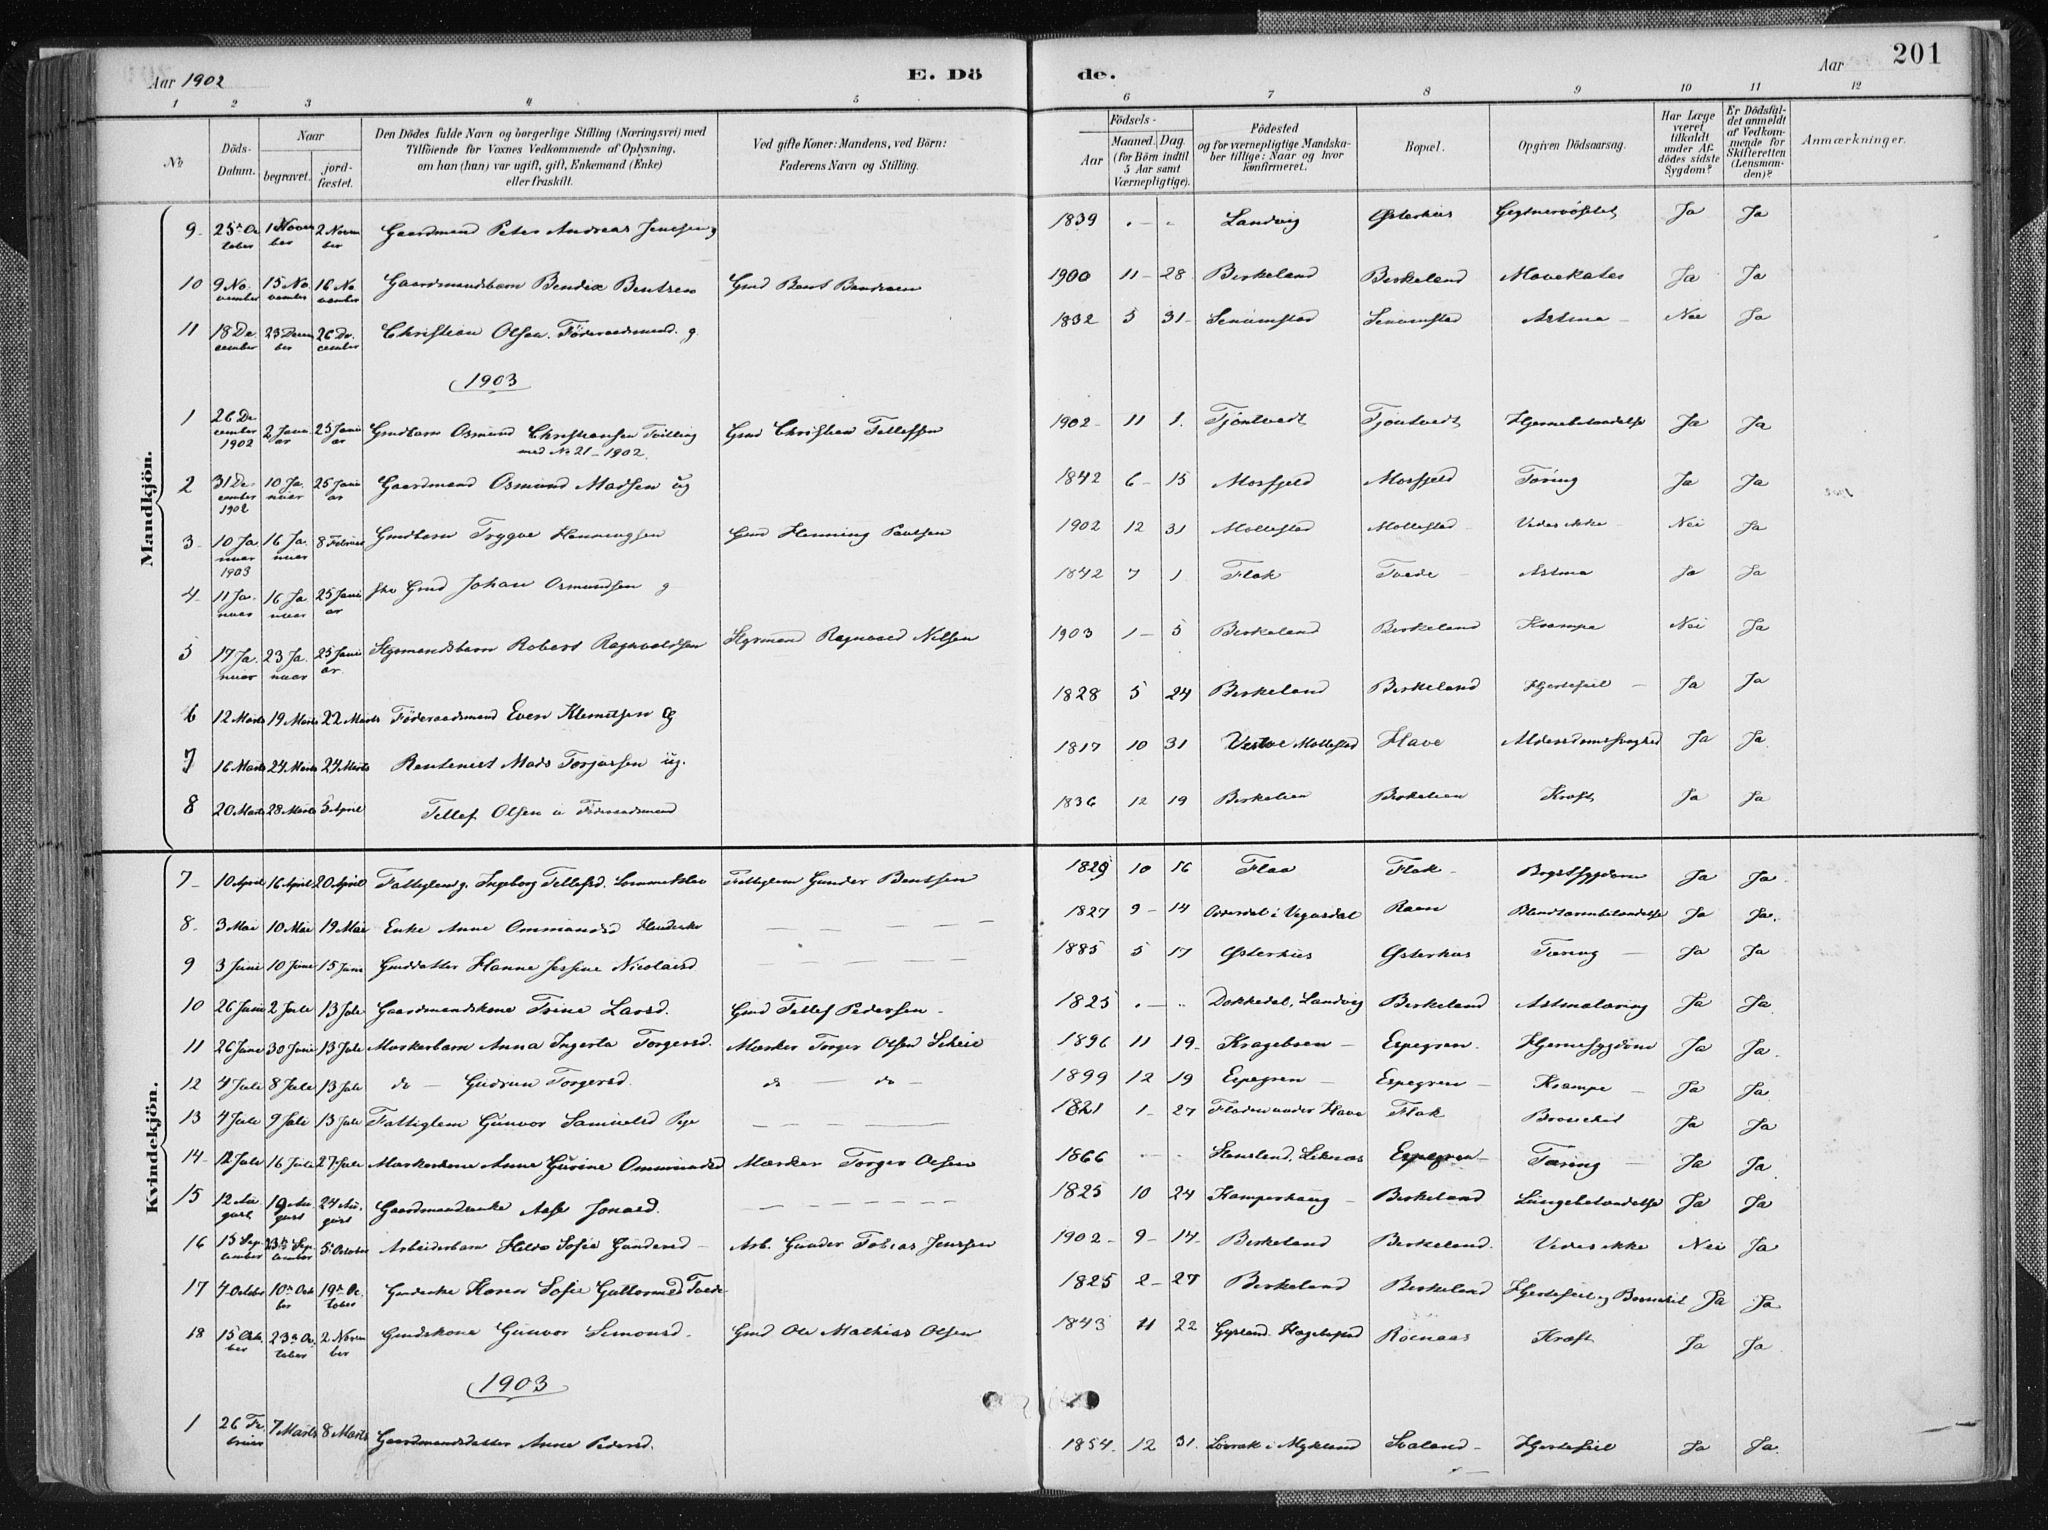 Aar 1902 E. Dö de. Aar 201
1 2 3 4 5 6 7 8 9 10 11 12
No
Döds-Datum.
Naar
begravet.
jord-fæstet.
Den Dödes fulde Navn og borgerlige Stilling (Næringsvei) med
Tilföiende for Voxnes Vedkommende af Oplysning,
om han (hun) var ugift, gift, Enkemand (Enke)
eller fraskilt.
Ved gifte Koner: Mandens, ved Börn:
Faderens Navn og Stilling.
Födsels-
Aar
Maaned. Dag.
(for Börn indtil
5 Aar samt
Værnepligtige).
Födested
og for værnepligtige Mandska-
ber tillige: Naar og hvor
konfirmeret.
Bopæl.
Opgiven Dödsaarsag.
Har Læge
været
tilkaldt
under Af-
dödes sidste
Sygdom?
Er Dödsfal-
det anmeldt
af Vedkom-
mende for
Skifteretten
(Lensman-
den)?
Anmærkninger.
Mandkjön.
9 25de October 1 November 2 November Gaardmand Peter Andreas Jenssen g 1839 - - Landvig Østerhus Ja Ja
10 9 November 15 November 16 November Gaardmandsbarn Bendix Bentsen Gmd Bent Bendixen 1900 11 - 28 Birkeland Birkeland Mavekatar Ja Ja
11 18 December 23 December 26 December Christian Olsen. Föderaadsmand. g 1832 5 31 Senumstad Senumstad Astma Nei Ja
1903
1 26 December 1902 2 Januar 25 Januar Gmdbarn Osmund Christiansen Tvilling med No 21 - 1902. Gmd Christian Tellefsen 1902 11 1. Tjöntvedt Tjöntvedt Hjernebetændelse Ja Ja
2 31 December 1902 10 Januar 25 Januar Gaardmand Osmund Madsen ug 1842 6 - 15 Morfjeld Morfjeld Tæring Ja Ja
3 10 Januar 1903 16 Januar 8 Februar Gmdbarn Trygve Henningsen Gmd Henning Paulsen 1902 12 31 Mollestad Mollestad Vides ikke Nei Ja
4 11 Januar 16 Januar 25 Januar fhv Gmd Johan Osmundsen g 1842 7 1 Flak Tvede Astma Ja Ja
5 17 Januar 23 Januar 25 Januar Styrmandsbarn Robert Ragnvaldsen Styrmand Ragnvald Nilsen 1903 1 - 5 Birkeland Birkeland Krampe Nei Ja
6 12 Marts 19 Marts 22 Marts Föderaadsmand Even Klemetsen g 1828 5 24 Birkeland Birkeland Hjertefeil Ja Ja
7 16 Marts 24 Marts 24 Marts Rentenist Mads Torjussen ug. 1817 10 31 Vestre Mollestad Have Alderdomssvaghed Ja Ja
8 20 Marts 28 Marts 5 April Tellef Olsen Föderaadsmand 1836 12 19 Birkelien Birkelien Kræft Ja Ja
Kvindekjön.
7 10 April 16 April 20 April Fattiglem g. Ingeborg Tellefsd. Fattiglem Gunder Bentsen 1829 10 16 Flaa Flak Brystsygdom Ja Ja
8. 3 Mai 10 Mai 19 Mai Enke Anne Ommundsd 1827 9 - 14 Vegusdal Blindtarmbetændelse Ja Ja.
9 3 Juni 10 Juni 15 Juni Gmddatter Hanne Jessine Nicolaisd 1885 5 17 Østerhus Østerhus Tæring Ja Ja
10 26 Juni 2 Juli 13 Juli Gaardmandskone Trine Larsd. Gmd Tellef Pedersen 1825 - - Dokkedal, Landvig Birkeland Ja Ja
11 26 Juni 30 Juni 13 Juli Mærkerbarn Anna Ingerta Torgersd. Mærker Torger Olsen 1896 11 19 Espegren. Hjernesygdom Ja Ja.
12 4 Juli 8 Juli 13 Juli do - Gudrun Torgersd. do - do - 1899 12 19 Espegren Espegren Krampe Ja Ja
13 4 Juli 9 Juli 13 Juli Fattiglem Gunvor Samuelsd 1821 1 - 27 under Have Flak Ja Ja
14 12 Juli 16 Juli 27 Juli Mærkerkone Anne Gurine Ommundsd Mærker Torger Olsen 1866 - - Espegren Tæring Ja Ja
15 12 August 19 August 24 August Gaardmandsenke Aase Jonasd. 1825 10 24 Kamperhaug Birkeland Lungebetændelse Ja Ja
16 15 September 23de September 5 October Arbeiderbarn Hilda Sofie Gundersd Arb. Gunder Tobias Jenssen 1902 9 - 14 Birkeland Birkeland. Vides ikke Nei Ja
17 4 October 10de October 19de October Gmdenke Karen Sofie Guttormsd Tvede 1825 2 - 27 Birkeland Birkeland Hjertefeil og Ja Ja
18 15 October 23de October 2 November Gmdskone Gunvor Simonsd. Gmd Ole Mathias Olsen 1843 11 22 Kræft Ja Ja
1903
1 26 Februar 7 Marts 8 Marts Gaardmandsdatter Anne Pedersd. 1854 12 31 i Mykland Svaland Hjertefeil Ja Ja